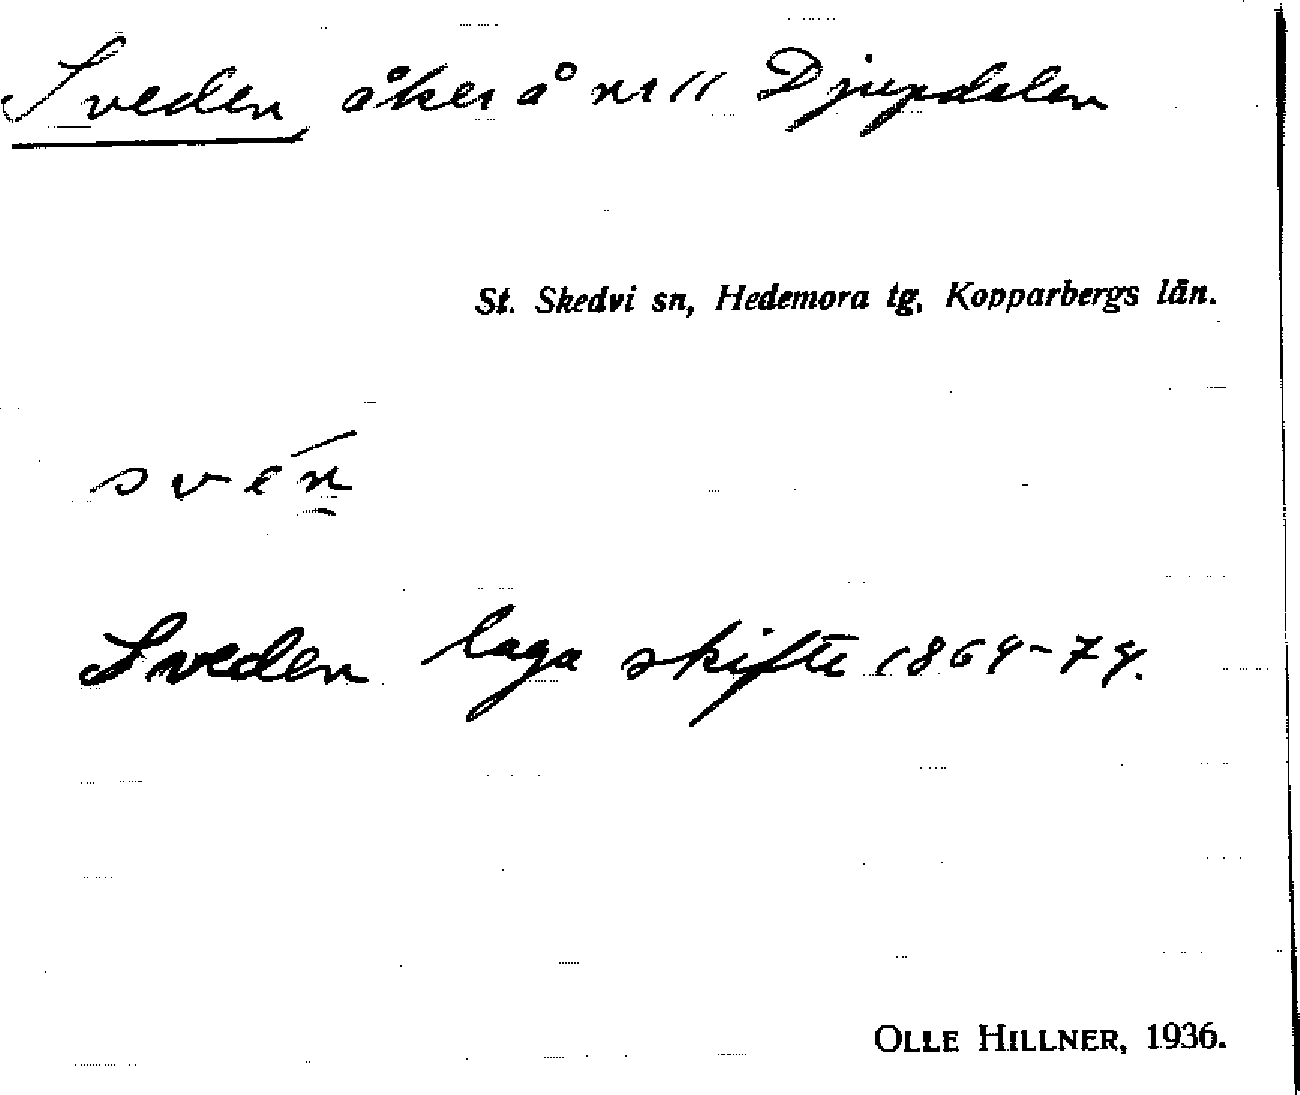 Sveden åker å nr 11 Djupdalen
St. Skedvi sn, Hedemora tg, Kopparbergs län.
svén
Sveden laga skifte 1869-74.
OLLE HILLNER, 1936.